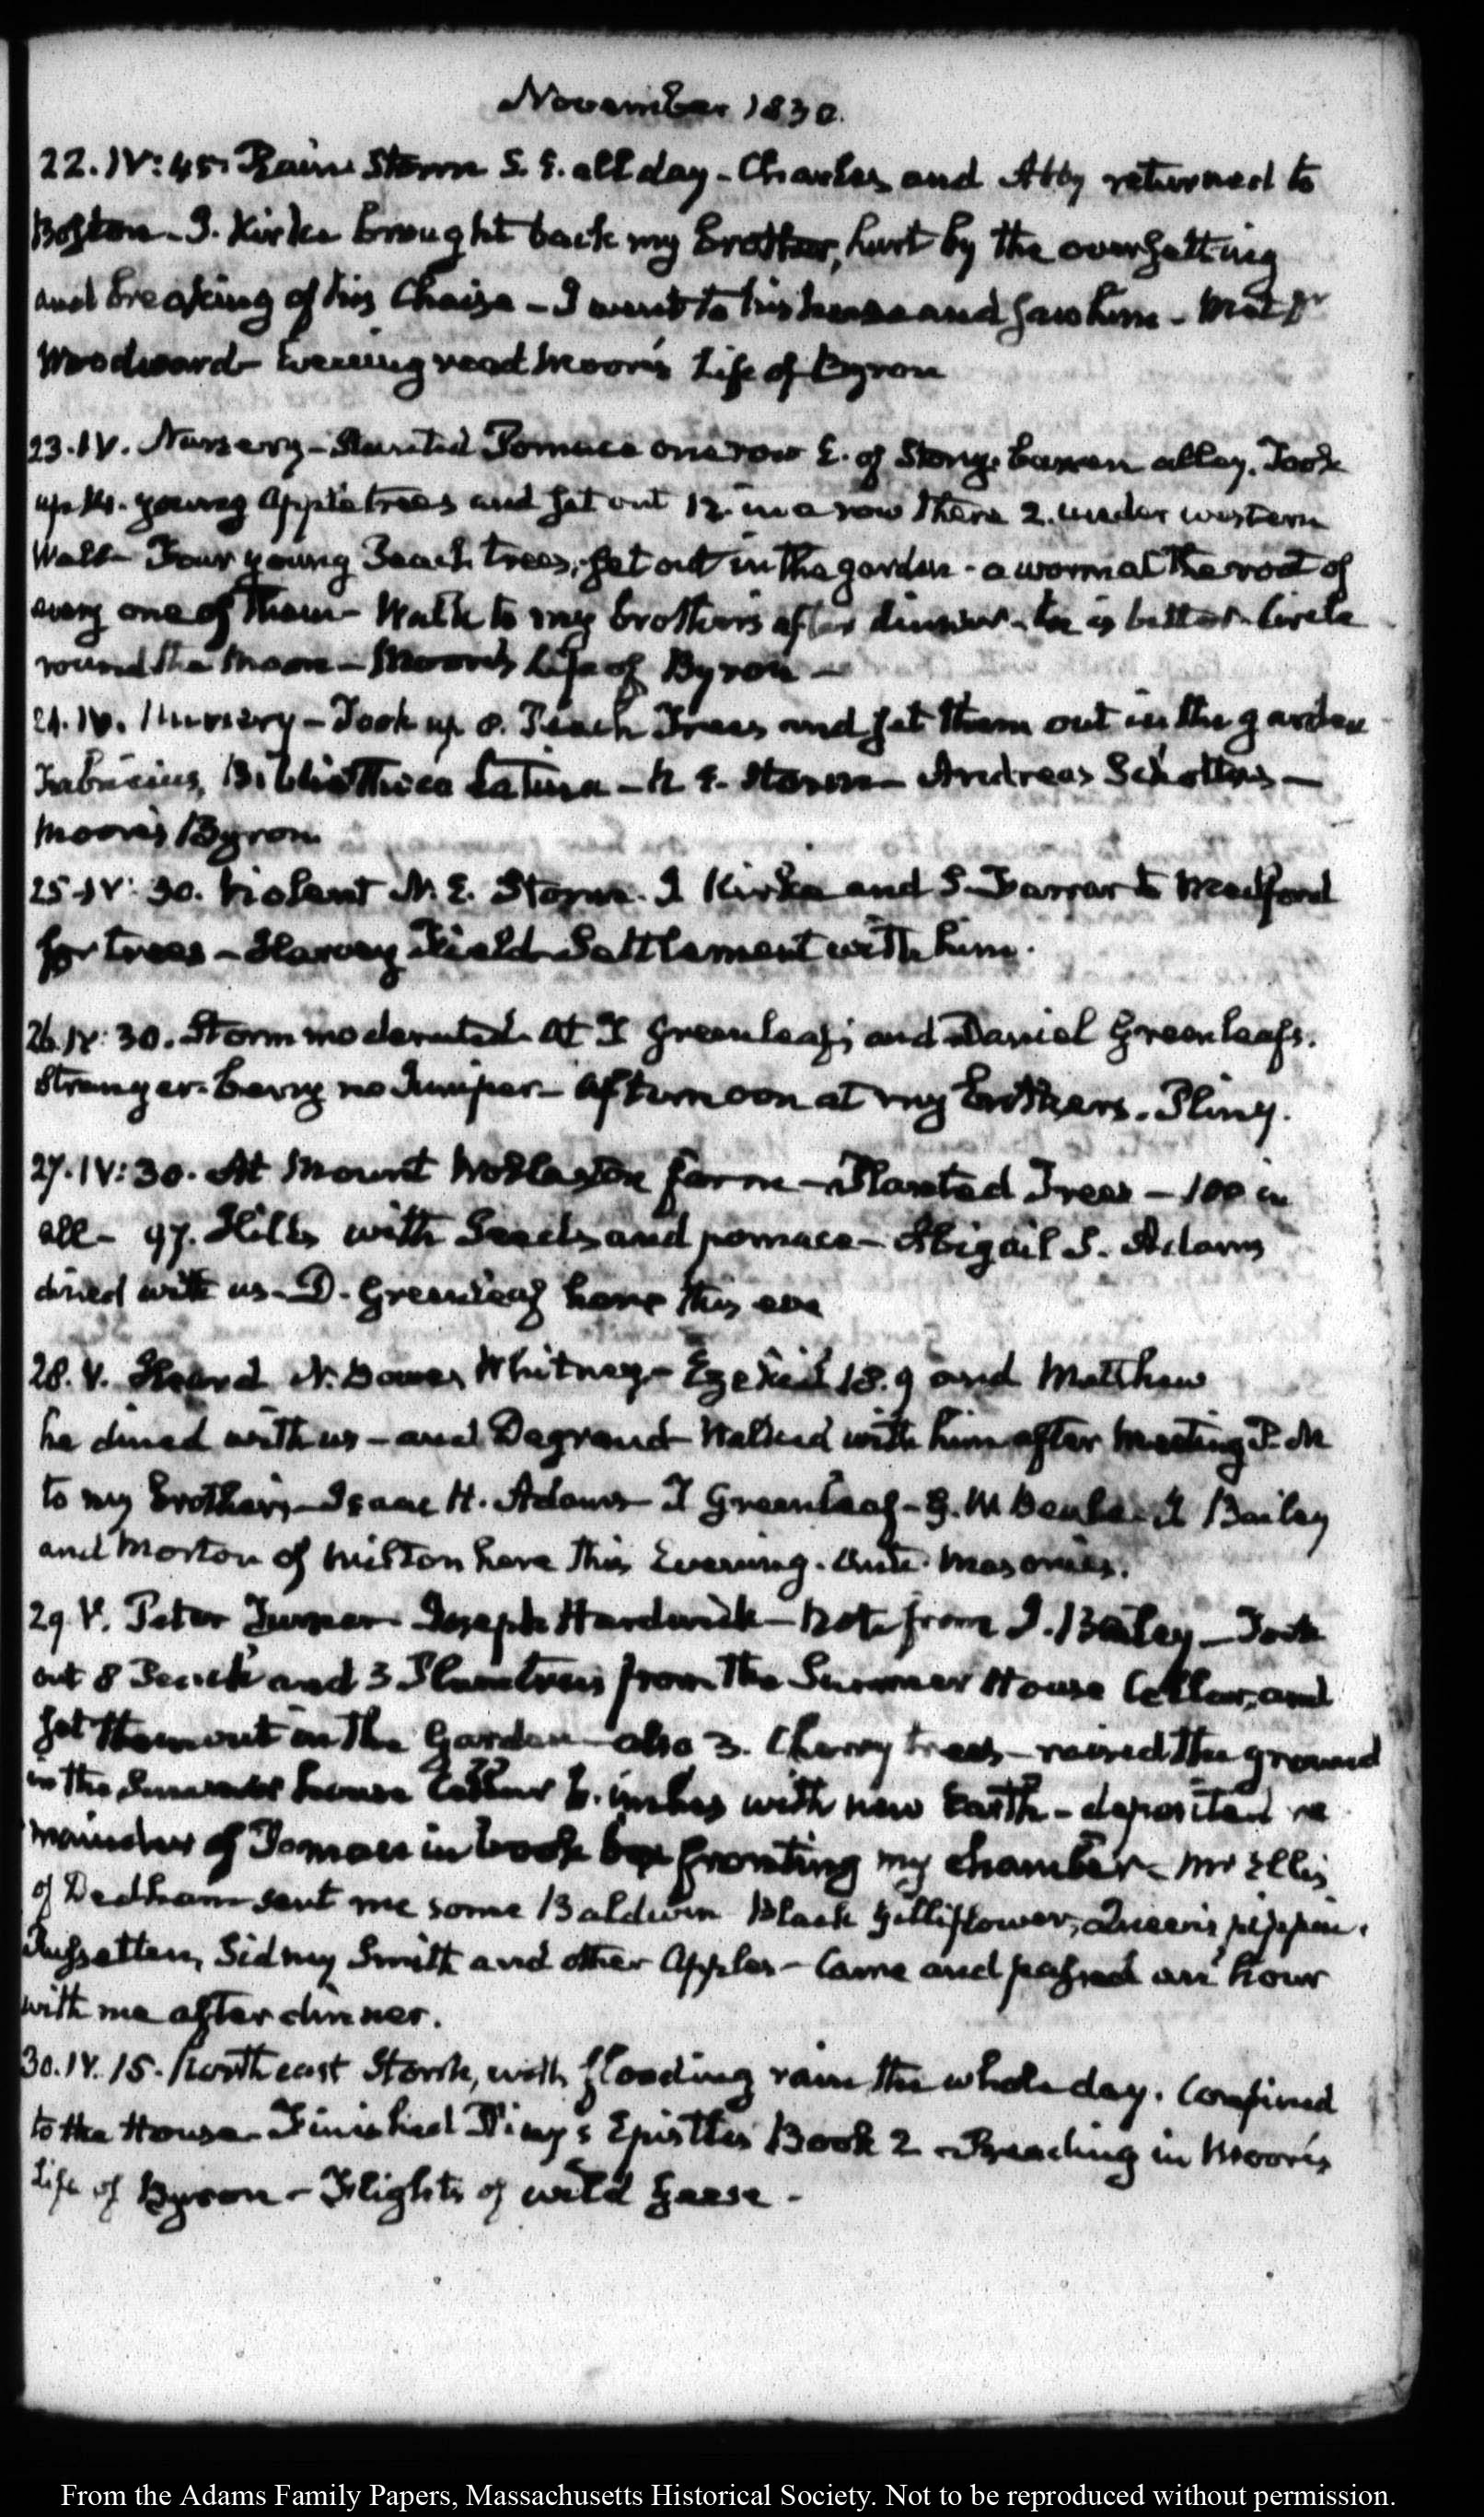 November 1830.
22. IV: 45. Rain Storm S. E. all day - Charles and Abby returned to
Boston - J. Kirke brought back my brother, hurt by the oversetting
and breaking of his Chaise - I went to his house and saw him - Met Dr
Woodward - Evening read Moore's Life of Byron
23. IV. Nursery - Planted Pomace one row E. of Stony barren alley. Took
up 14. young Apple trees and set out 12. in a row there 2. under western
Wall - Four young Peach trees, set out in the garden - a worm at the root of
every one of them - Walk to my brother's after dinner - he is better - Circle
round the Moon - Moore's Life of Byron -
24. IV. Nursery - Took up 8. Peach Trees and set them out in the garden
Fabricius, Bibliotheca Latina - N. E. Storm - Andreas Schottus -
Moore's Byron
25. IV: 30. Violent N. E. Storm. J Kirke and S. Farrar to Medford
for trees - Harvey Field Settlement with him.
26. IV: 30. Storm moderated - At T Greenleaf's and Daniel Greenleafs.
Stranger-berry no Juniper - Afternoon at my brothers. Pliny.
27. IV: 30. At Mount Wollaston farm - Planted Trees - 100 in
all - 97. Hills with Seeds and pomace - Abigail S. Adams
dined with us - D. Greenleaf here this eve
28. V. Heard N. Bowes Whitney - Ezekiel 18. 9 and Matthew
he dined with us - and Degrand - Walked with him after Meeting P. M
to my brother's - Isaac H. Adams - T Greenleaf - G. W Beale - J Bailey
and Morton of Milton here this Evening. Anti-Masonries.
29. V. Peter Turner - Joseph Hardwick - Note from J. Bailey - Took
out 8 Peach and 3 Plum trees from the Summer House Cellar, and
set them out in the Garden - also 3. Cherry trees - raised the ground
in the Summer house Cellar 6. inches with new Earth - deposited re
mainder of Pomace in book box fronting my chamber - Mr Ellis
of Dedham sent me some Baldwin Black Gilliflower, Queen's pippin,
Russetten, Sidney Smith and other Apples - Came and passed an hour
with me after dinner.
30. IV. 15. North east Storm, with flooding rain the whole day. Confined
to the House - Finished Pliny's Epistles Book 2 - Reading in Moore's
Life of Byron - Flights of wild Geese -
From the Adams Family Papers, Massachusetts Historical Society. Not to be reproduced without permission.